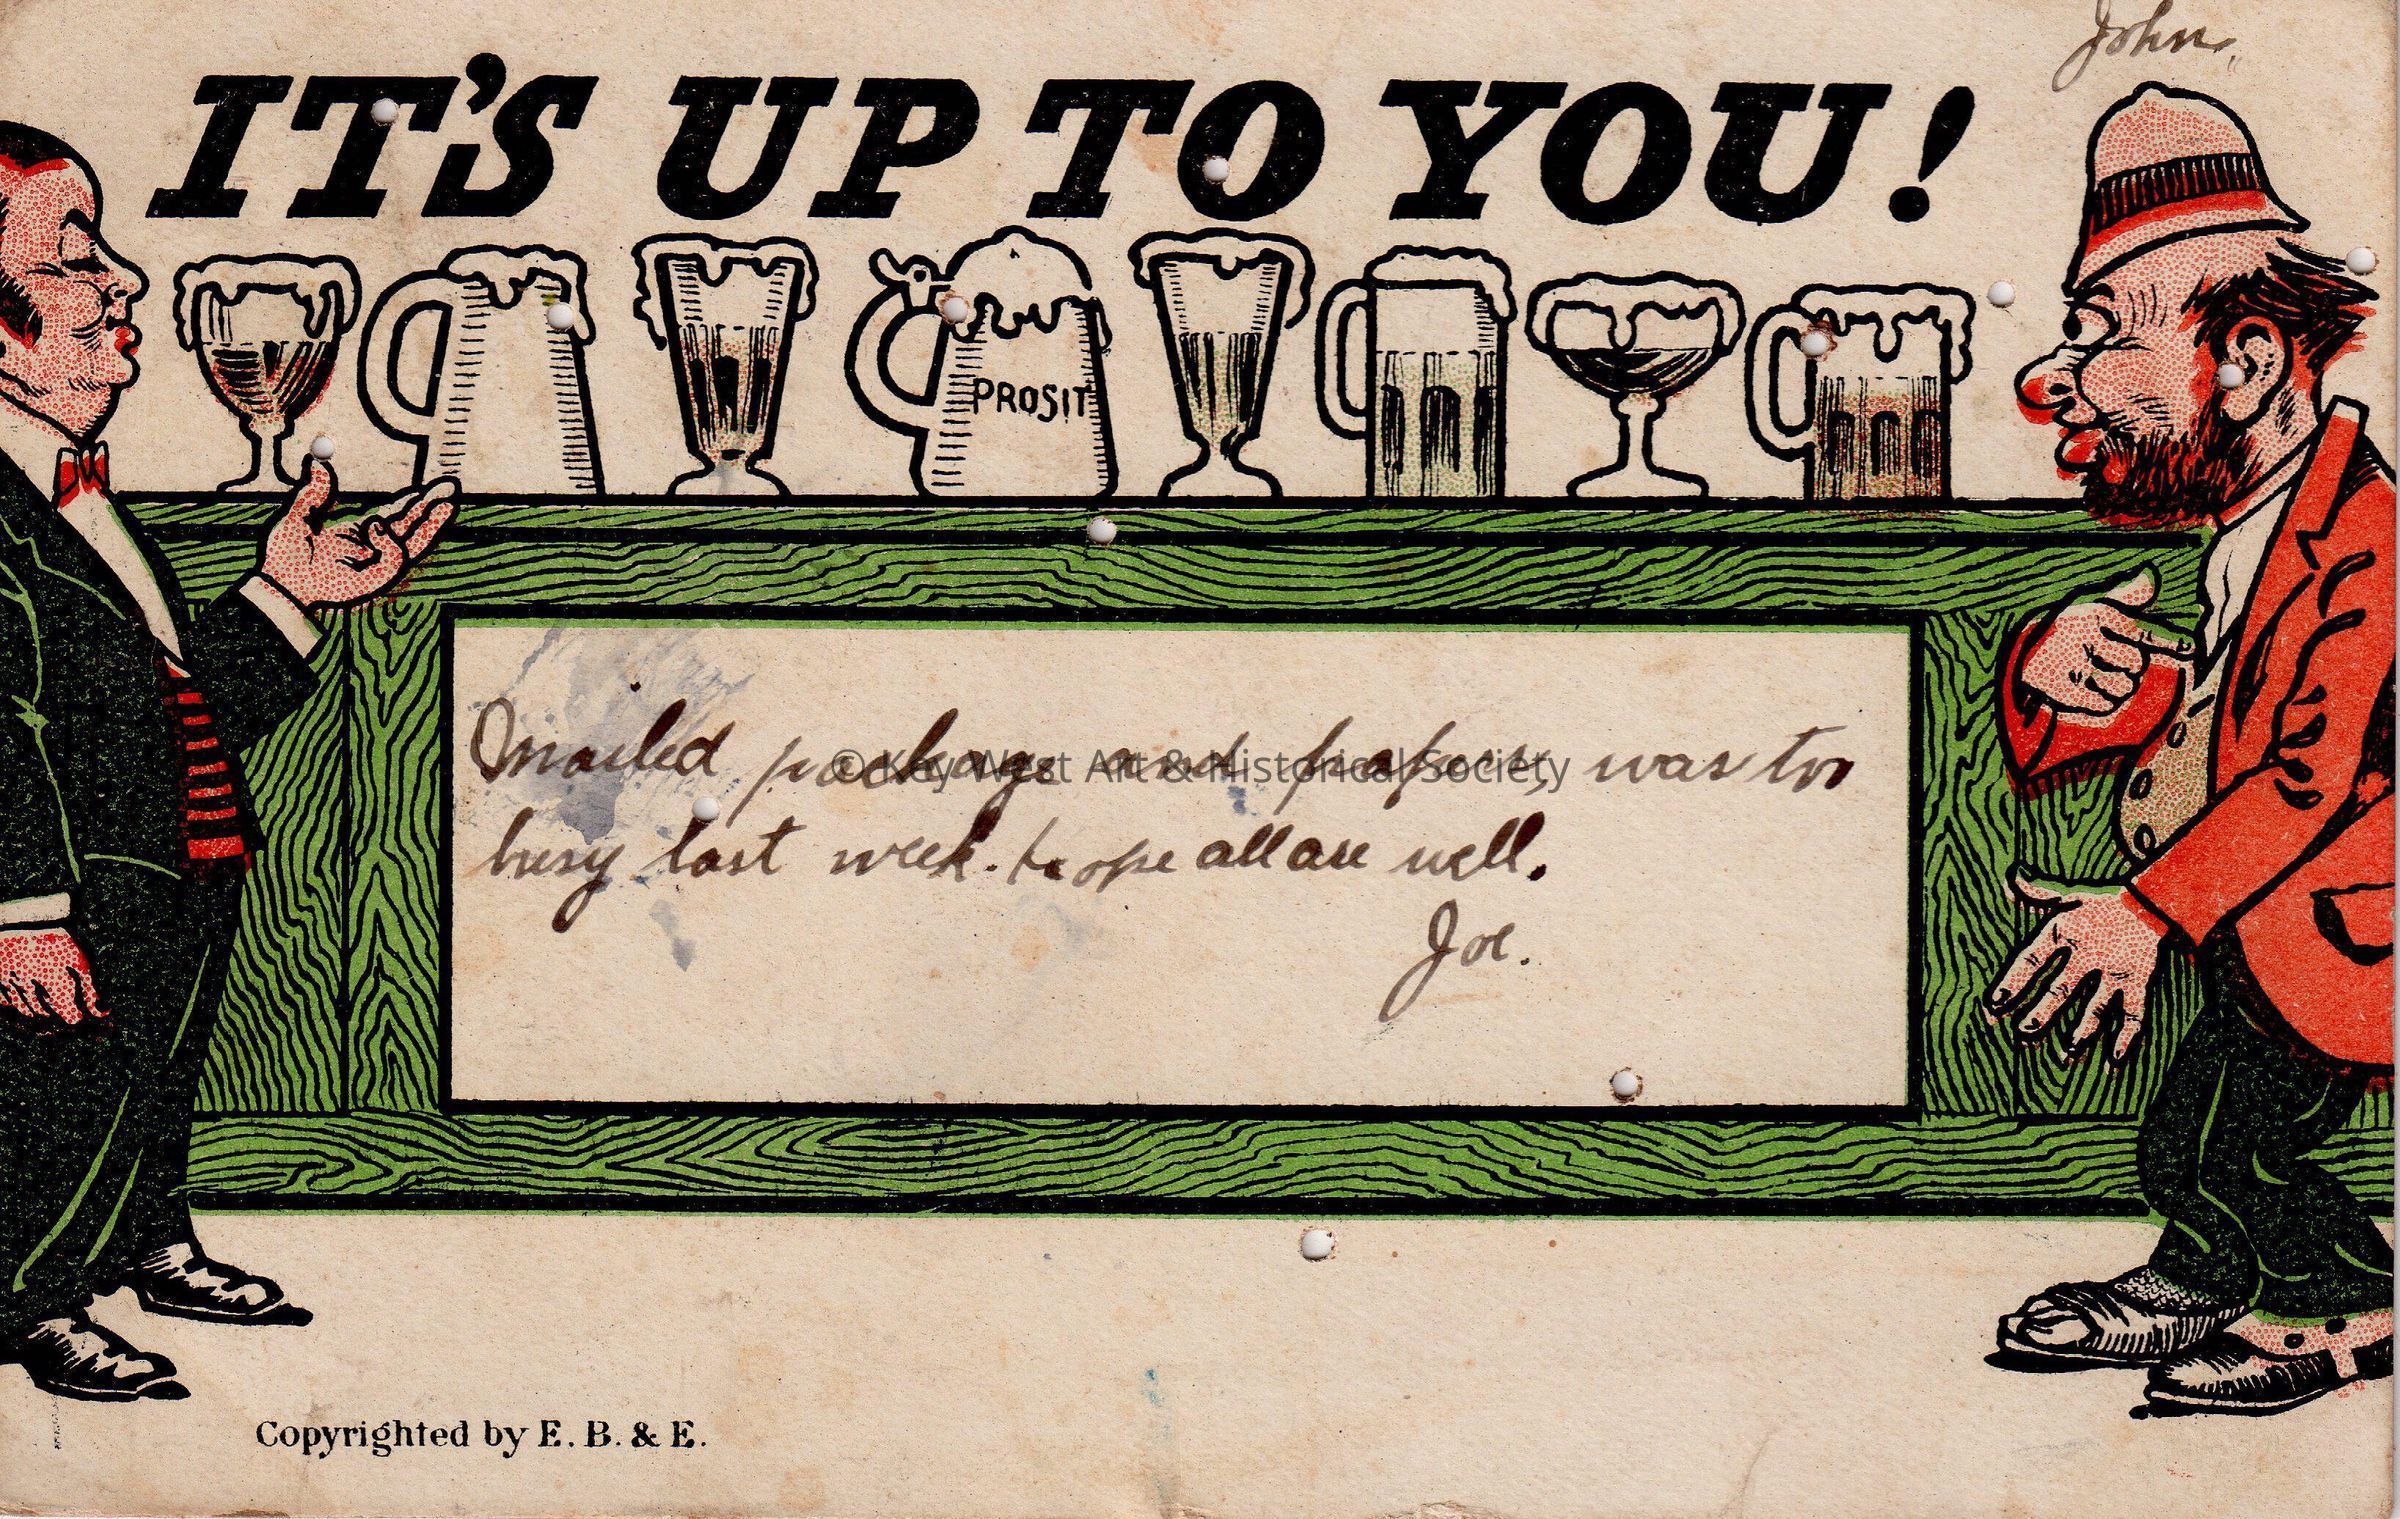 John,
IT'S UP TO YOU!
PROSIT
I mailed package and papers, was too
busy last week. hope all are well.
Joe.
© Key West Art & Historical Society
Copyrighted by E. B. & E.